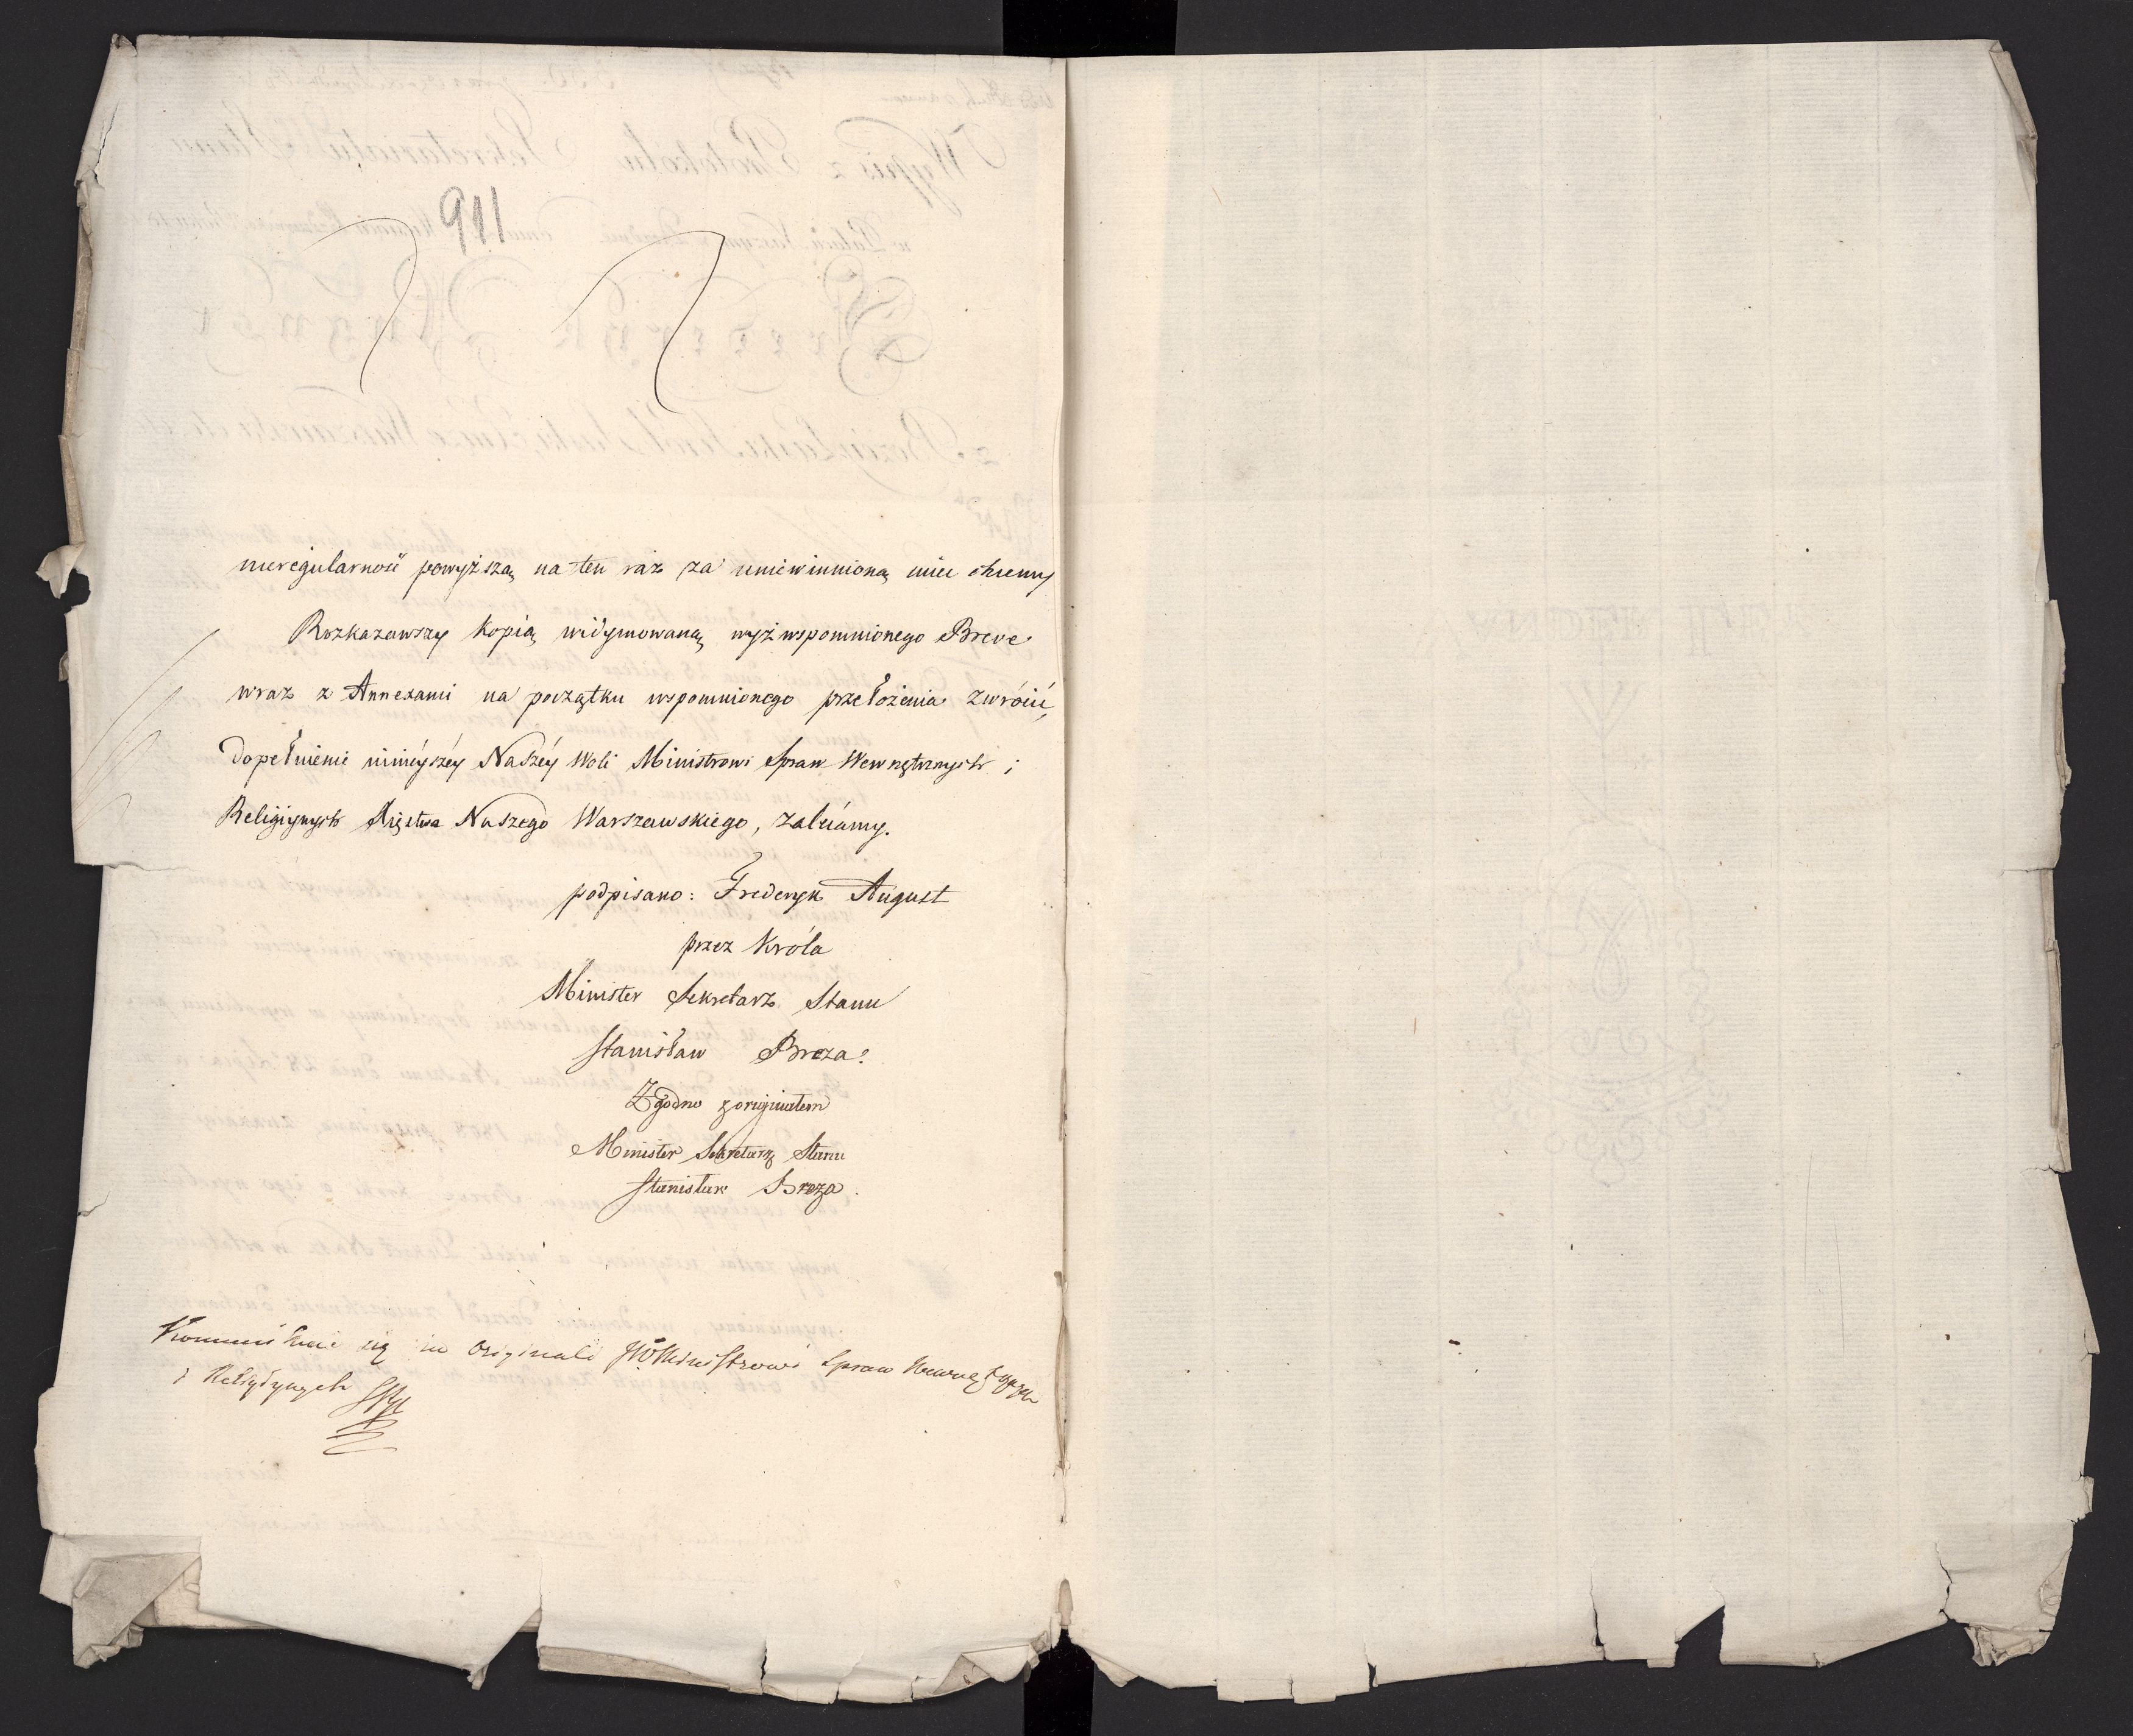 911
nieregularność powyższą na ten raz za uniewinnioną mieć chcemy
Rozkazawszy kopią widymowaną wyż wspomnionego Breve
wraz z Annexami na początku wspomnionego przełożenia zwrócić,
dopełnienie ninieyszéy Naszéy Woli Ministrowi Spraw Wewnętrznych i
Religiynych Xięstwa Naszego Warszawskiego, zalecamy.
podpisano: Frederyk August
przez Króla
Minister Sekretarz Stanu
Stanisław Breza.
Zgodno z oryginałem
Minister Sekretarz Stanu
Stanisław Breza.
Kommunikuie się in Originali JW Ministrowi Spraw Wewnętrznych
i Religiynych